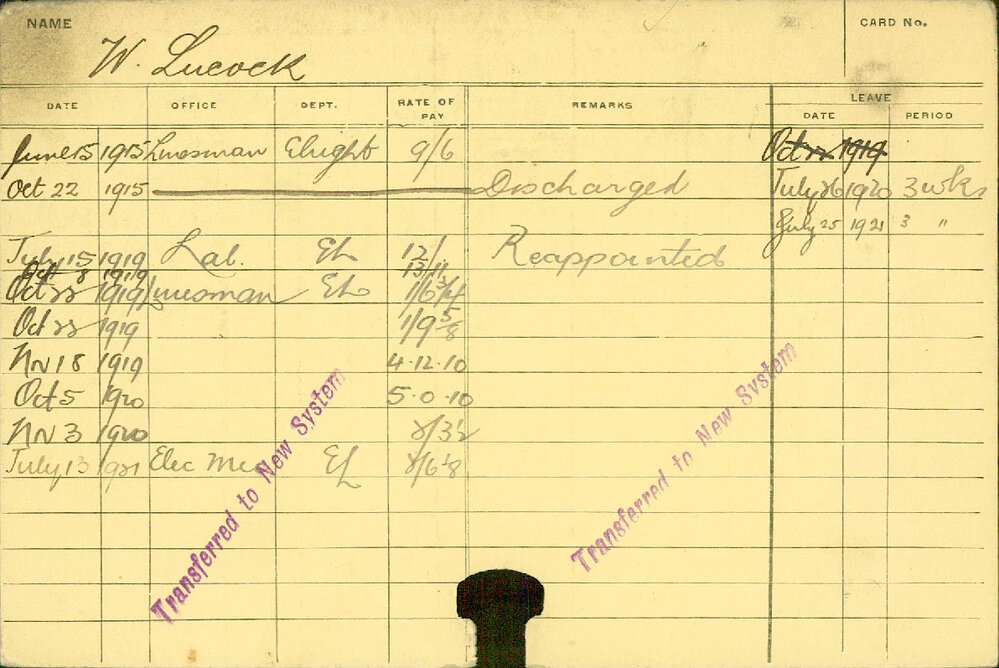 NAME
W. Lucock
CARD No.
DATE OFFICE DEPT. RATE OF PAY REMARKS LEAVE
DATE PERIOD
June 15 1915 Linesman Elright 9/6 Oct 22 1919
Oct 22 1915 Discharged July 26 1920 3 wks
July 25 1921 3 "
July 15 1919 Lab. EL 12/1 Reappointed
Oct 8 1919 13/11
Oct 22 1919 Linesman EL 1/6 3/4
Oct 22 1919 1/9 5/8
Nov 18 1919 4.12.10
Oct 5 1920 5.0.10
Nov 3 1920 2/3½
July 13 1921 Elec EL
Transferred to New System
Transferred to New System